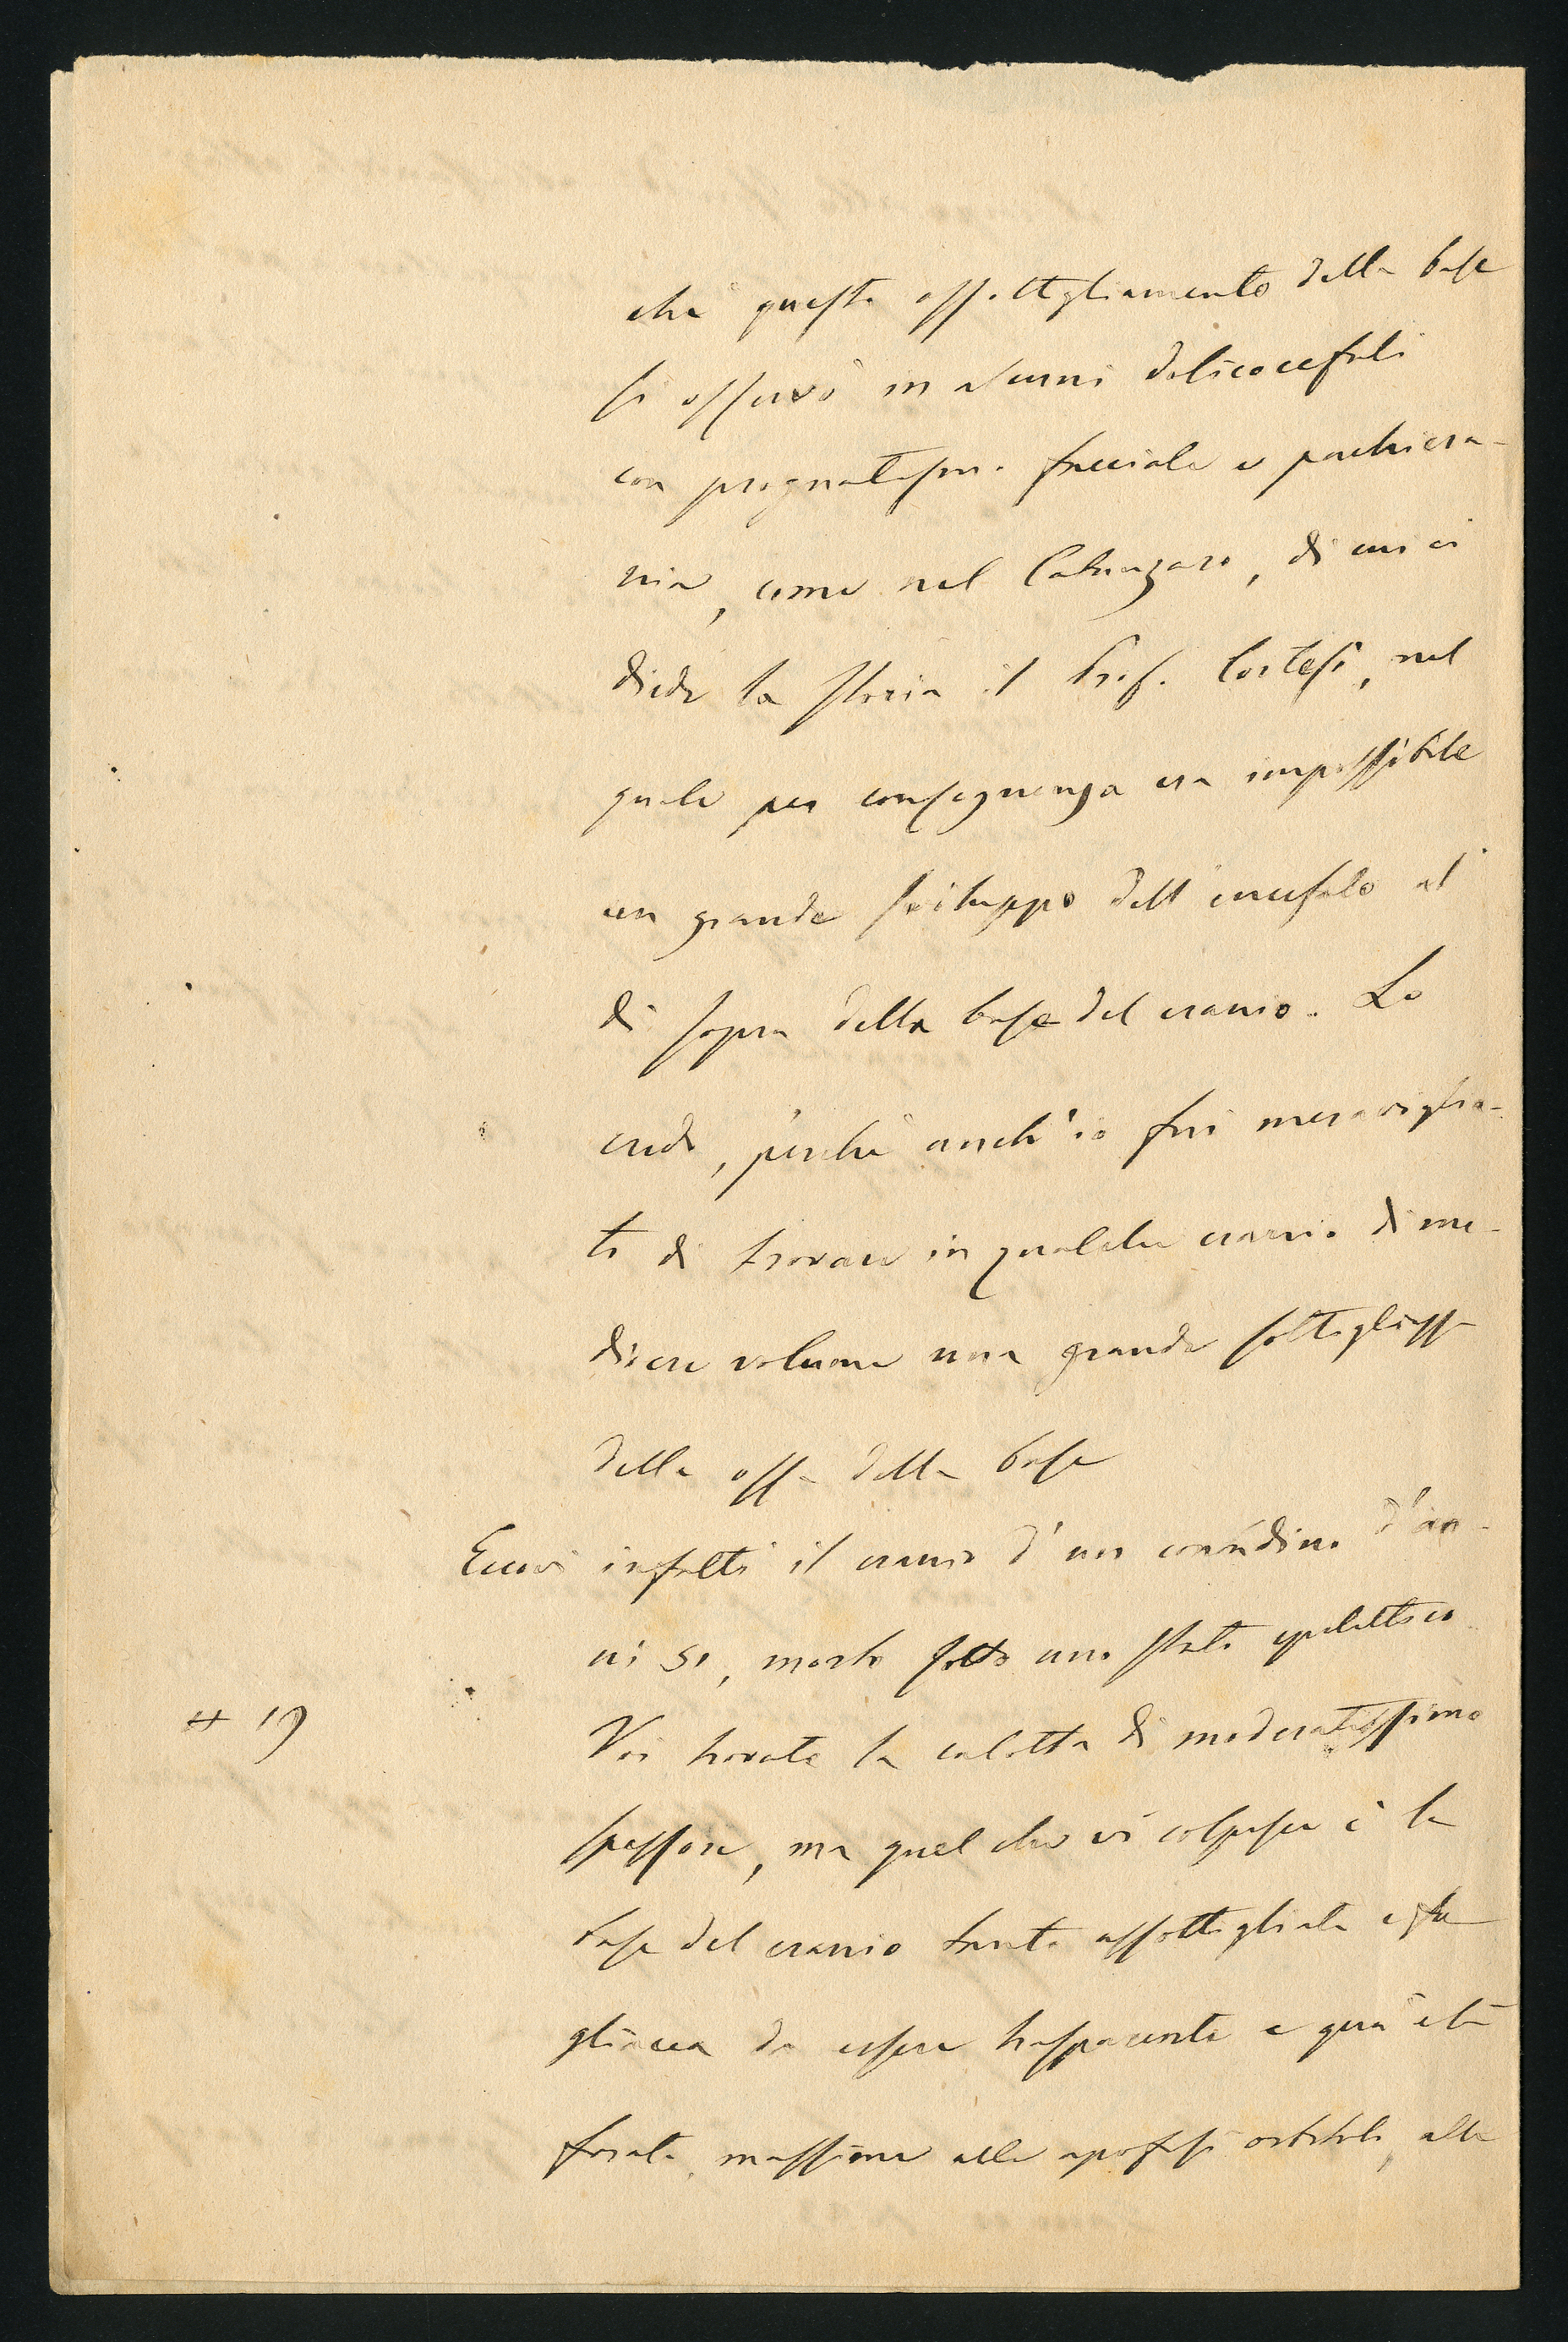 che questo assottigliamento della base
si osservò in alcuni dolicocefali
con prognatismo facciale e pachicra-
nia, come nel Catanzaro, di cui ci
diede la storia il Prof. Cortesi, nel
quale per conseguenza era impossibile
un grande sviluppo dell'encefalo al
di sopra della base del cranio. Lo
credo, perché anch'io fui meraviglia-
to di trovare in qualche cranio di me-
diocre volume una grande sottigliezza
delle ossa della base
Eccovi infatti il cranio d'un contadino d'an-
ni 51, morto sotto uno stato epilettico
# 19
Voi trovate la calotta di moderatissimo
spessore, ma quel che vi colpisce è la
base del cranio tanto assottigliata e fo-
gliacea da essere trasparente e qua e là
forata, massime alle apofisi orbitali, alle